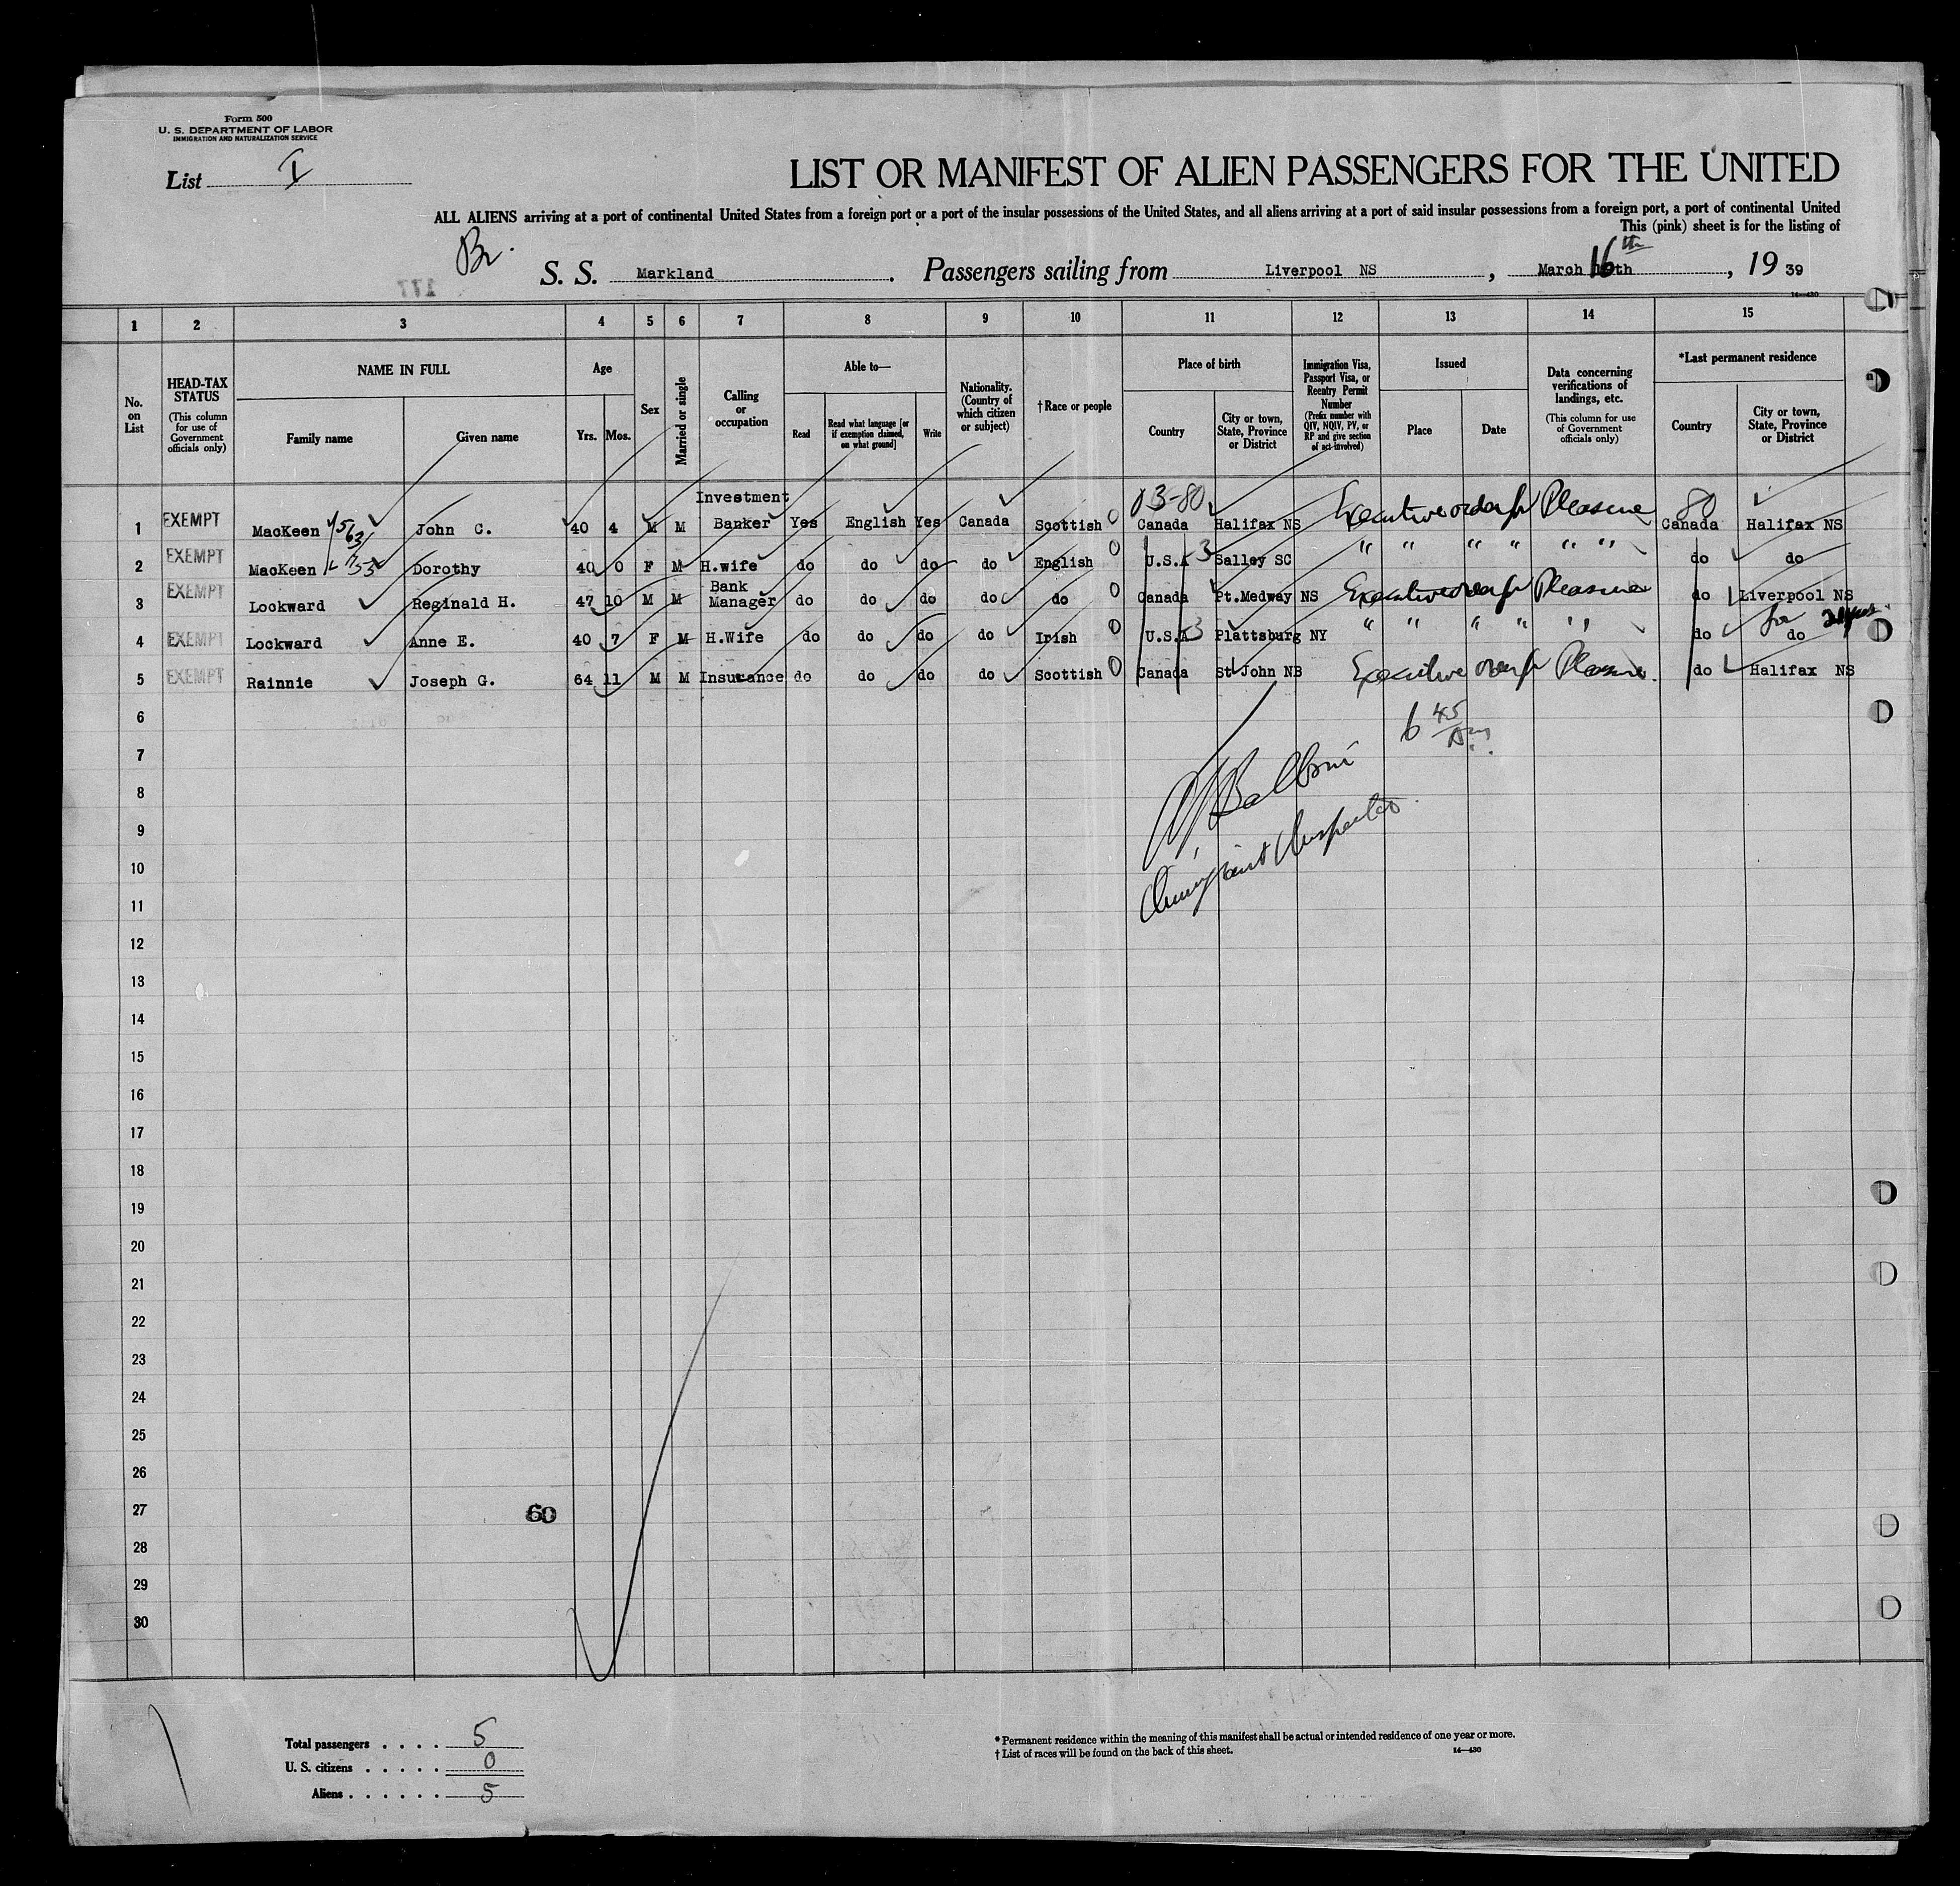 Form 500
U. S. DEPARTMENT OF LABOR
IMMIGRATION AND NATURALIZATION SERVICE
List I
LIST OR MANIFEST OF ALIEN PASSENGERS FOR THE UNITED
ALL ALIENS arriving at a port of continental United States from a foreign port or a port of the insular possessions of the United States, and all aliens arriving at a port of said insular possessions from a foreign port, a port of continental United
This (pink) sheet is for the listing of
Br.
S. S. Markland. Passengers sailing from Liverpool NS, March 16th, 19 39
177
14—430
1 2 3 4 5 6 7 8 9 10 11 12 13 14 15
No. on List
HEAD-TAX STATUS (This column for use of Government officials only)
NAME IN FULL Family name Given name
Age Yrs. Mos.
Sex
Married or single
Calling or occupation
Able to— Read Read what language [or if exemption claimed, on what ground] Write
Nationality. (Country of which citizen or subject)
† Race or people
Place of birth Country City or town, State, Province or District
Immigration Visa, Passport Visa, or Reentry Permit Number (Prefix number with QIV, NQIV, PV, or RP and give section of act involved)
Issued Place Date
Data concerning verifications of landings, etc. (This column for use of Government officials only)
*Last permanent residence Country City or town, State, Province or District
03-80 80
1 EXEMPT MacKeen John C. 40 4 M M Investment Banker Yes English Yes Canada Scottish 0 Canada Halifax NS Executive order Pleasure Canada Halifax NS
2 EXEMPT MacKeen Dorothy 40 0 F M H.wife do do do do English 0 U.S.A 3 Salley SC " " " " " " do do
3 EXEMPT Lockward Reginald H. 47 10 M M Bank Manager do do do do do 0 Canada Pt.Medway NS Executive order Pleasure do Liverpool NS
4 EXEMPT Lockward Anne E. 40 7 F M H.Wife do do do do Irish 0 U.S.A 3 Plattsburg NY " " " " " do do for
5 EXEMPT Rainnie Joseph G. 64 11 M M Insurance do do do do Scottish 0 Canada St John NB Executive order Pleasure. do Halifax NS
6 6 45 AM
7
8 Balboni
9
10 Immigrant Inspector
11
12
13
14
15
16
17
18
19
20
21
22
23
24
25
26
27 60
28
29
30
Total passengers . . . . 5
U. S. citizens . . . . . 0
Aliens . . . . . . 5
* Permanent residence within the meaning of this manifest shall be actual or intended residence of one year or more.
† List of races will be found on the back of this sheet. 14—430